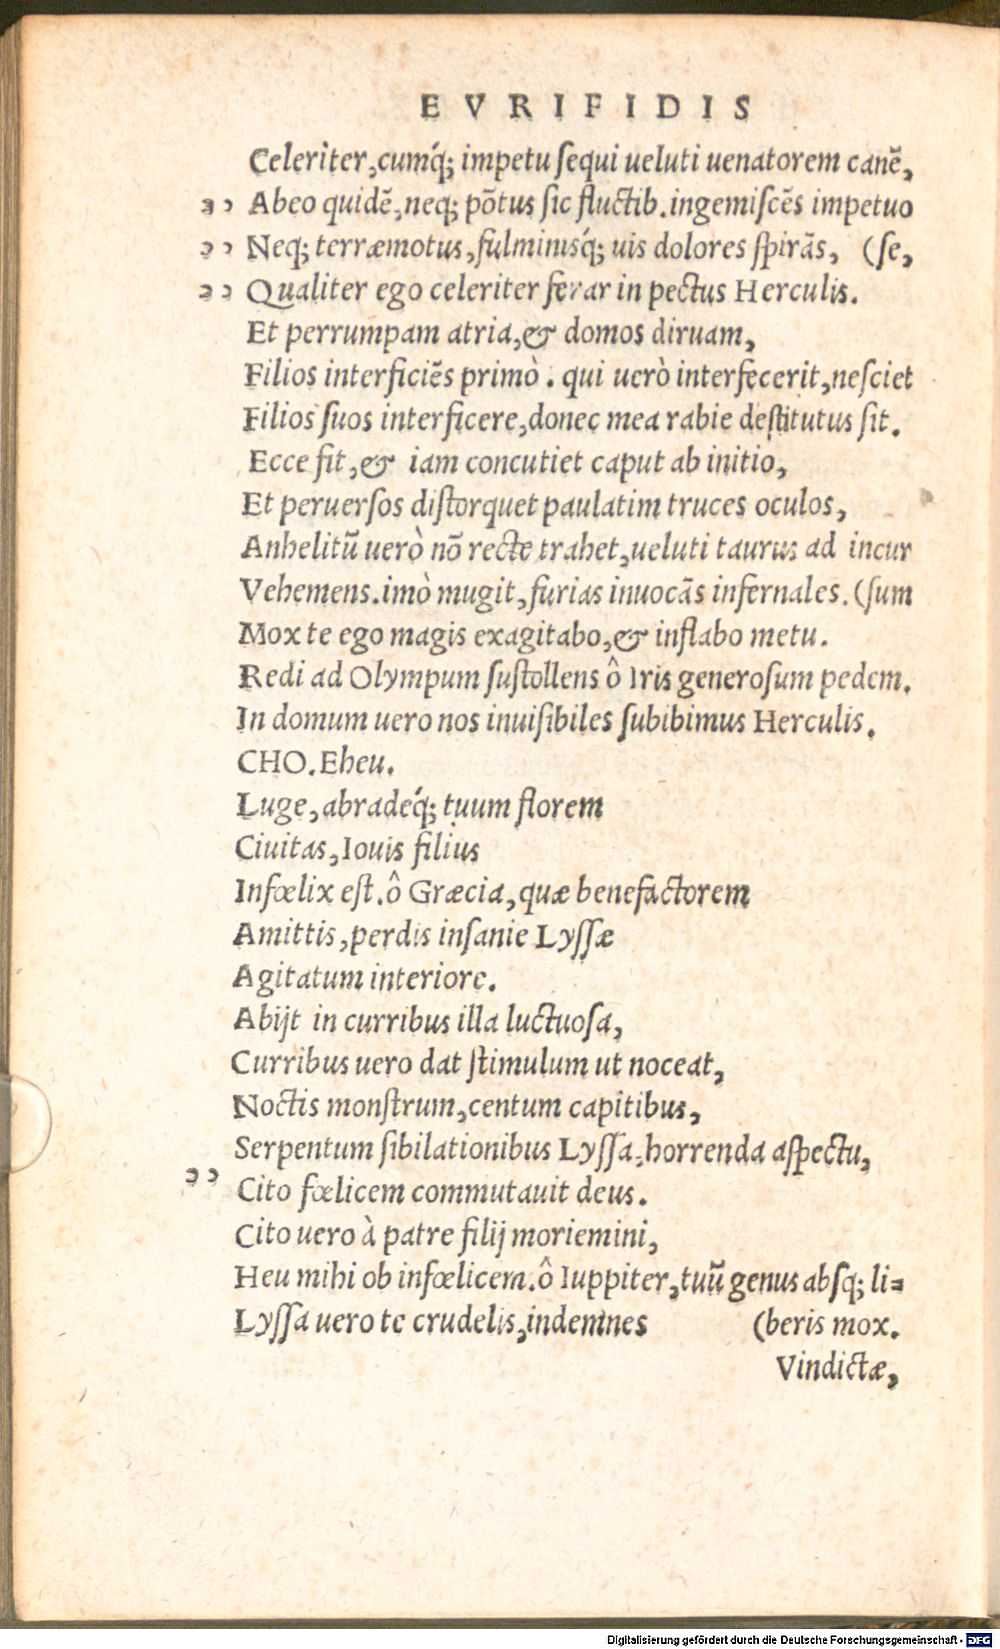 EVRIFIDIS
Celeriter, cumq́; impetu sequi ueluti uenatorem canē,
„ Abeo quidē, neq; pōtus sic fluctib. ingemiscēs impetuo
„ Neq; terræmotus, fulminisq́; uis dolores spirās, (se,
„ Qualiter ego celeriter ferar in pectus Herculis.
Et perrumpam atria, & domos diruam,
Filios interficiēs primò. qui uerò interfecerit, nesciet
Filios suos interficere, donec mea rabie destitutus sit.
Ecce fit, & iam concutiet caput ab initio,
Et peruersos distorquet paulatim truces oculos,
Anhelitū uerò nō recte trahet, ueluti taurus ad incur
Vehemens. imò mugit, furias inuocās infernales. (sum
Mox te ego magis exagitabo, & inflabo metu.
Redi ad Olympum sustollens ô Iris generosum pedem.
In domum uero nos inuisibiles subibimus Herculis.
CHO. Eheu.
Luge, abradeq́; tuum florem
Ciuitas, Iouis filius
Infœlix est. ô Græcia, quæ benefactorem
Amittis, perdis insanie Lyssæ
Agitatum interiore.
Abijt in curribus illa luctuosa,
Curribus uero dat stimulum ut noceat,
Noctis monstrum, centum capitibus,
Serpentum sibilationibus Lyssa, horrenda aspectu,
„ Cito fœlicem commutauit deus.
Cito uero à patre filij moriemini,
Heu mihi ob infœlicem. ô Iuppiter, tuū genus absq; li=
Lyssa uero te crudelis, indemnes (beris mox.
Vindictæ,
Digitalisierung gefördert durch die Deutsche Forschungsgemeinschaft - DFG